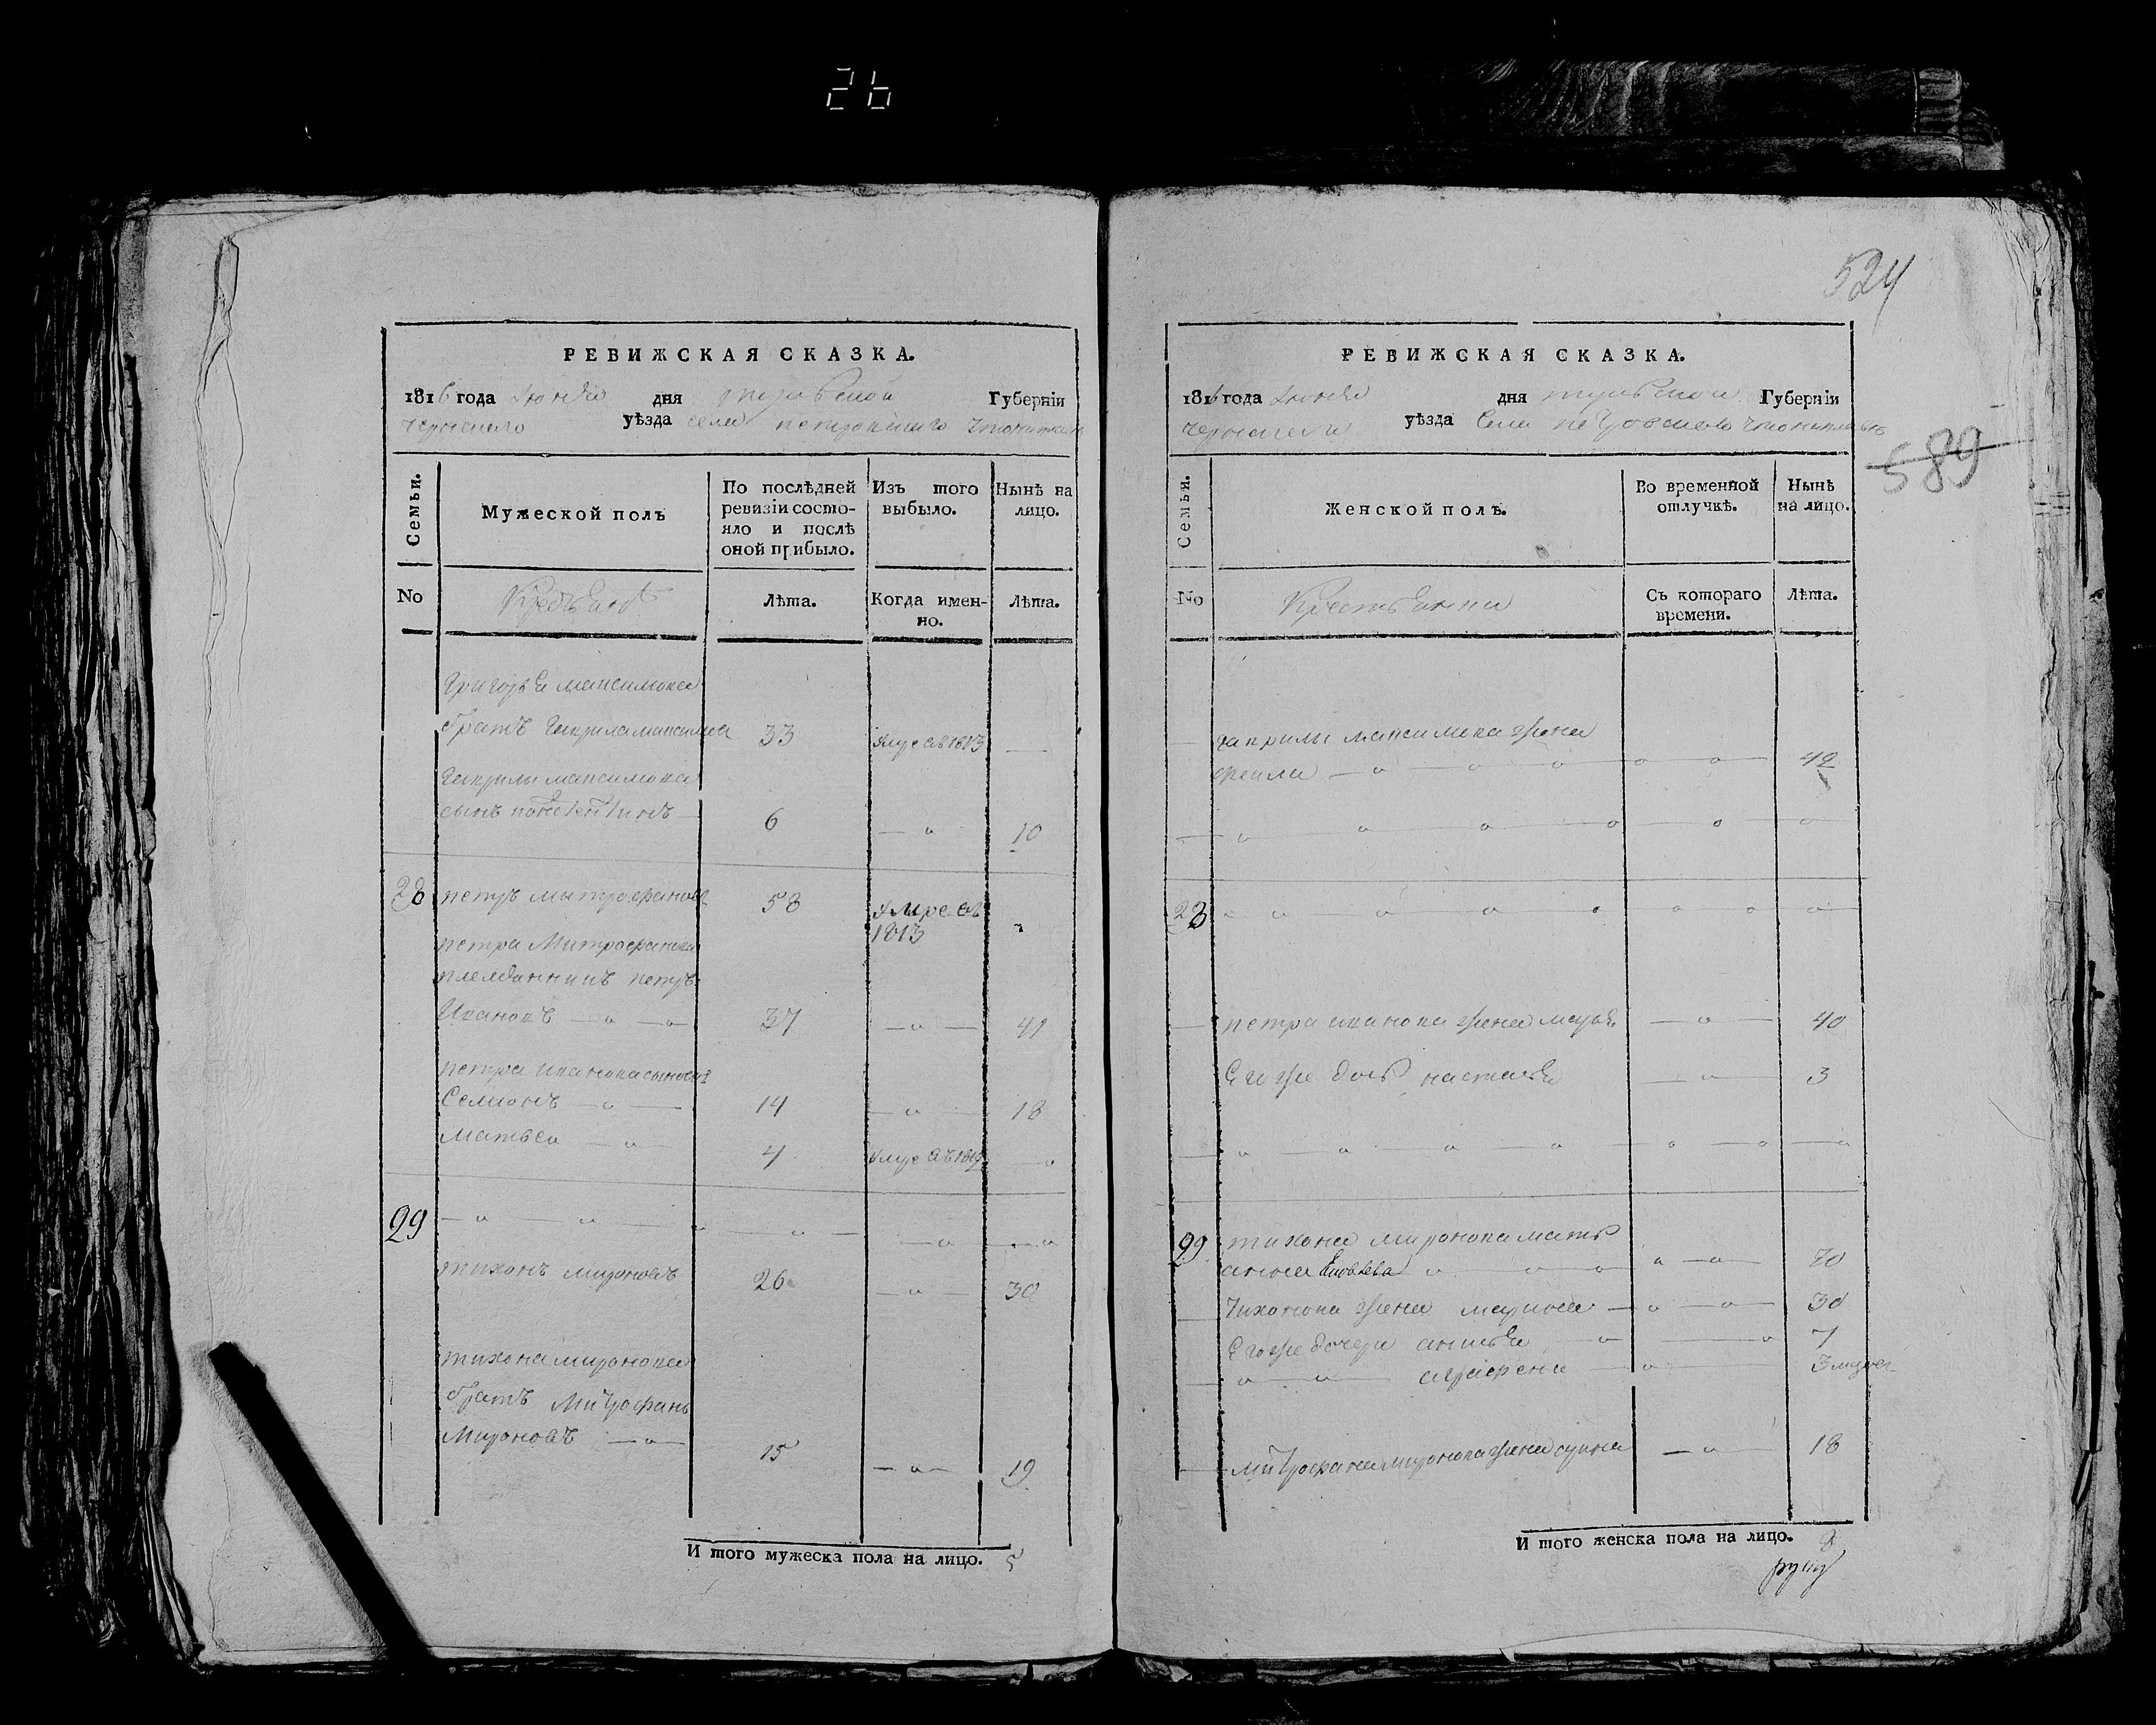 26
РЕВИЖСКАЯ СКАЗКА.
1816 года Июня дня тульской Губерніи
чернскаго уѣзда села петровскаго
Семьи. Мужеской полъ По послѣдней ревизіи состояло и послѣ оной прибыло. Изъ того выбыло. Нынѣ на лицо.
No Лѣта. Когда именно. Лѣта.
григорья максимова
братъ гаврила максимов 33 умре въ 1813 —
гаврилы максимова
сынъ 6 — 10
28 петръ митрофановъ 58 умре въ 1813
петра Митрофанова
племянникъ петръ
Ивановъ 37 — 41
петра иванова сыновья
Семионъ 14 — 18
Матвей 4 умре въ
29
тихонъ мироновъ 26 — 30
тихона миронова
братъ Митрофанъ
Мироновъ 15 — 19
И того мужеска пола на лицо. 5
524
589
РЕВИЖСКАЯ СКАЗКА.
1816 года Июня дня тульской Губерніи
уѣзда Села
Семьи. Женской полъ. Во временной отлучкѣ. Нынѣ на лицо.
No Крестьянки Съ котораго времени. Лѣта.
гаврилы максимова жена
42
28
петра иванова жена марья 40
Его же дочь настасья 3
29 тихона миронова мать
анна Яковлева 70
Тихонова жена марина 30
Его же дочери анисья 7
аграфена 3
Митрофана миронова жена 18
И того женска пола на лицо. 8